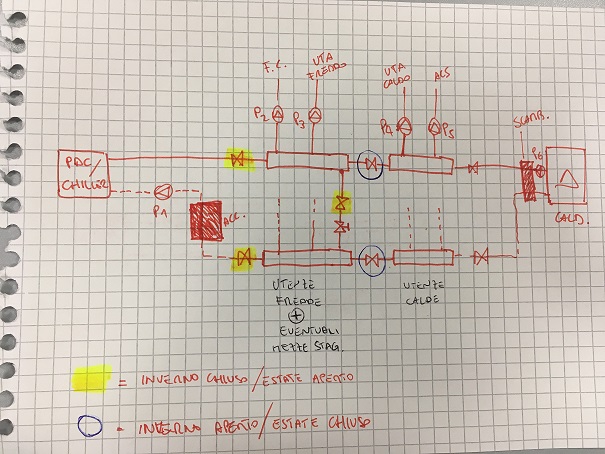 F.C.
UTA
FREDDO
UTA
CALDO
ACS
P2
P3
P4
P5
SCAMB.
P6
PDC/
CHILLER
P1
ACC.
CALD.
UTENZE
FREDDE
+
EVENTUALI
MEZZE STAG.
UTENZE
CALDE
= INVERNO CHIUSO/ESTATE APERTO
= INVERNO APERTO/ESTATE CHIUSO